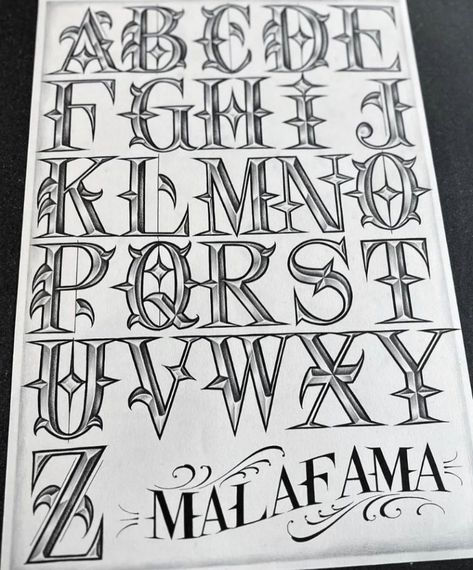 ABCDE
FGHIJ
KLMNO
PQRST
UVWXY
Z
MALAFAMA